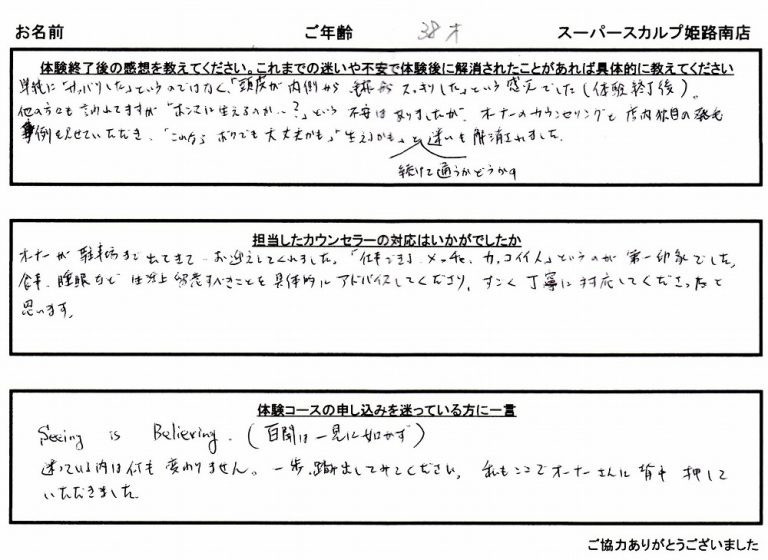 お名前 ご年齢 38才 スーパースカルプ姫路南店
体験終了後の感想を教えてください。これまでの迷いや不安で体験後に解消されたことがあれば具体的に教えてください
単純に"サッパリした"というのではなく、"頭皮が内側から スッキリした"という感覚でした(体験終了後)。
他の方々も 言われてますが "ホントに生えるのか…?"という 不安はありましたが、オーナーのカウンセリングと 店内独自の発毛
事例を見せていただき、"これなら ボクでも 大丈夫かも""生えるかも"と迷いも解消されました。
続けて通うかどうかの
担当したカウンセラーの対応はいかがでしたか
オーナーが 駐車場まで 出てきて お迎えしてくれました。「仕事できる、メッチャ、カッコイイ人」というのが 第一印象でした。
食事、睡眠など 生活上 留意すべきことを 具体的に アドバイスしてくださり、すごく 丁寧に 対応してくださったと
思います。
体験コースの申し込みを迷っている方に一言
Seeing is Believing. (百聞は一見に如かず)
迷っている内は何も 変わりません。一歩、踏み出してみてください。私もここでオーナーさんに 背中 押して
いただきました。
ご協力ありがとうございました